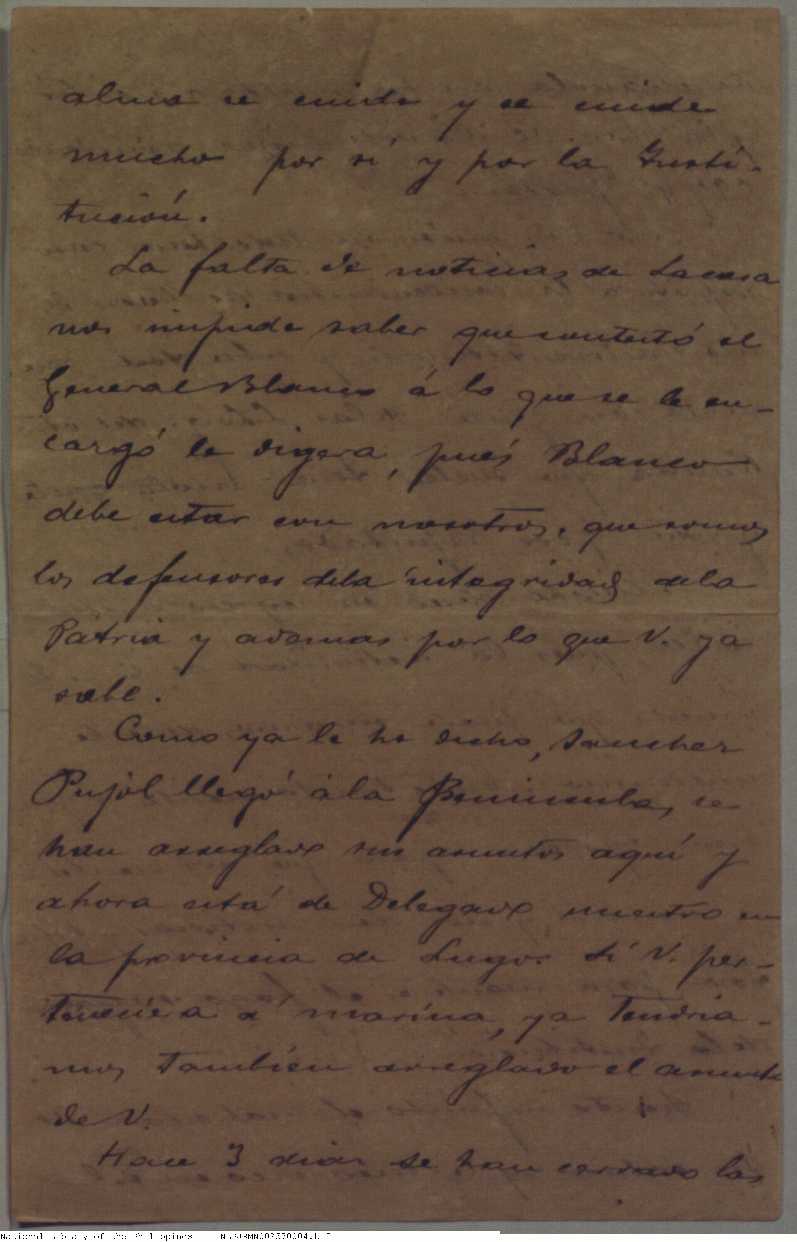 alma se cuida y se cuida
mucho por sí y por la Insti-
tución.
La falta de noticias de Lacasa
nos impide saber que contestó el
General Blanco á lo que se le en-
cargó le digera, pués Blanco
debe estar con nosotros, que somos
los defensores dela integridad dela
Pátria y ademas por lo que V. ya
sabe.
Como ya le he dicho, Sanchez
Pujól llegó á la Peninsula, se
han arreglado sus asuntos aquí y
ahora está de Delegado nuestro en
la provincia de Lugo. Si V. per-
teneciera á marina, ya tendria-
mos tambien arreglado el asunto
de V.
Hace 3 dias se han cerrado las
National Library of the Philippines